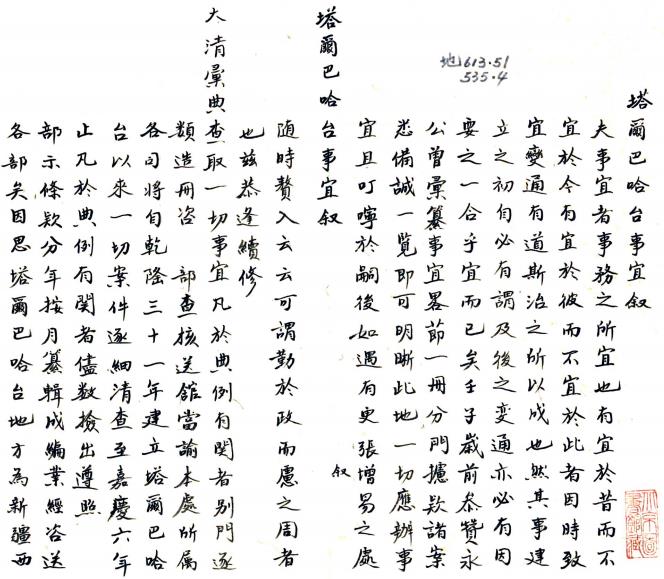 塔爾巴哈台事宜叙
夫事宜者事務之所宜也有宜於昔而不
宜於今有宜於彼而不宜於此者因時致
宜變通有道斯治之所以成也然其事建
立之初自必有謂及後之变通亦必有因
要之一合乎宜而已矣壬子歲前叅贊永
公曾彙纂事宜畧節一冊分門攄欵諸案
悉備誠一覽即可明晰此地一切應辦事
宜且叮嚀於嗣後如遇有更張增易之處
地613.51
535.4
塔爾巴哈台事宜叙
叙
随時贅入云云可謂勤於政而慮之周者
也兹恭逢續修
大清彙典查取一切事宜凡於典例有関者別門逐
類造冊咨 部查核送舘當諭本處所属
各司將自乾隆三十一年建立塔爾巴哈
台以來一切案件逐細清查至嘉慶六年
止凡於典例有関者儘数撿出遵照
部示條欵分年按月纂輯成編業經咨送
各部矣因思塔爾巴哈台地方為新疆西